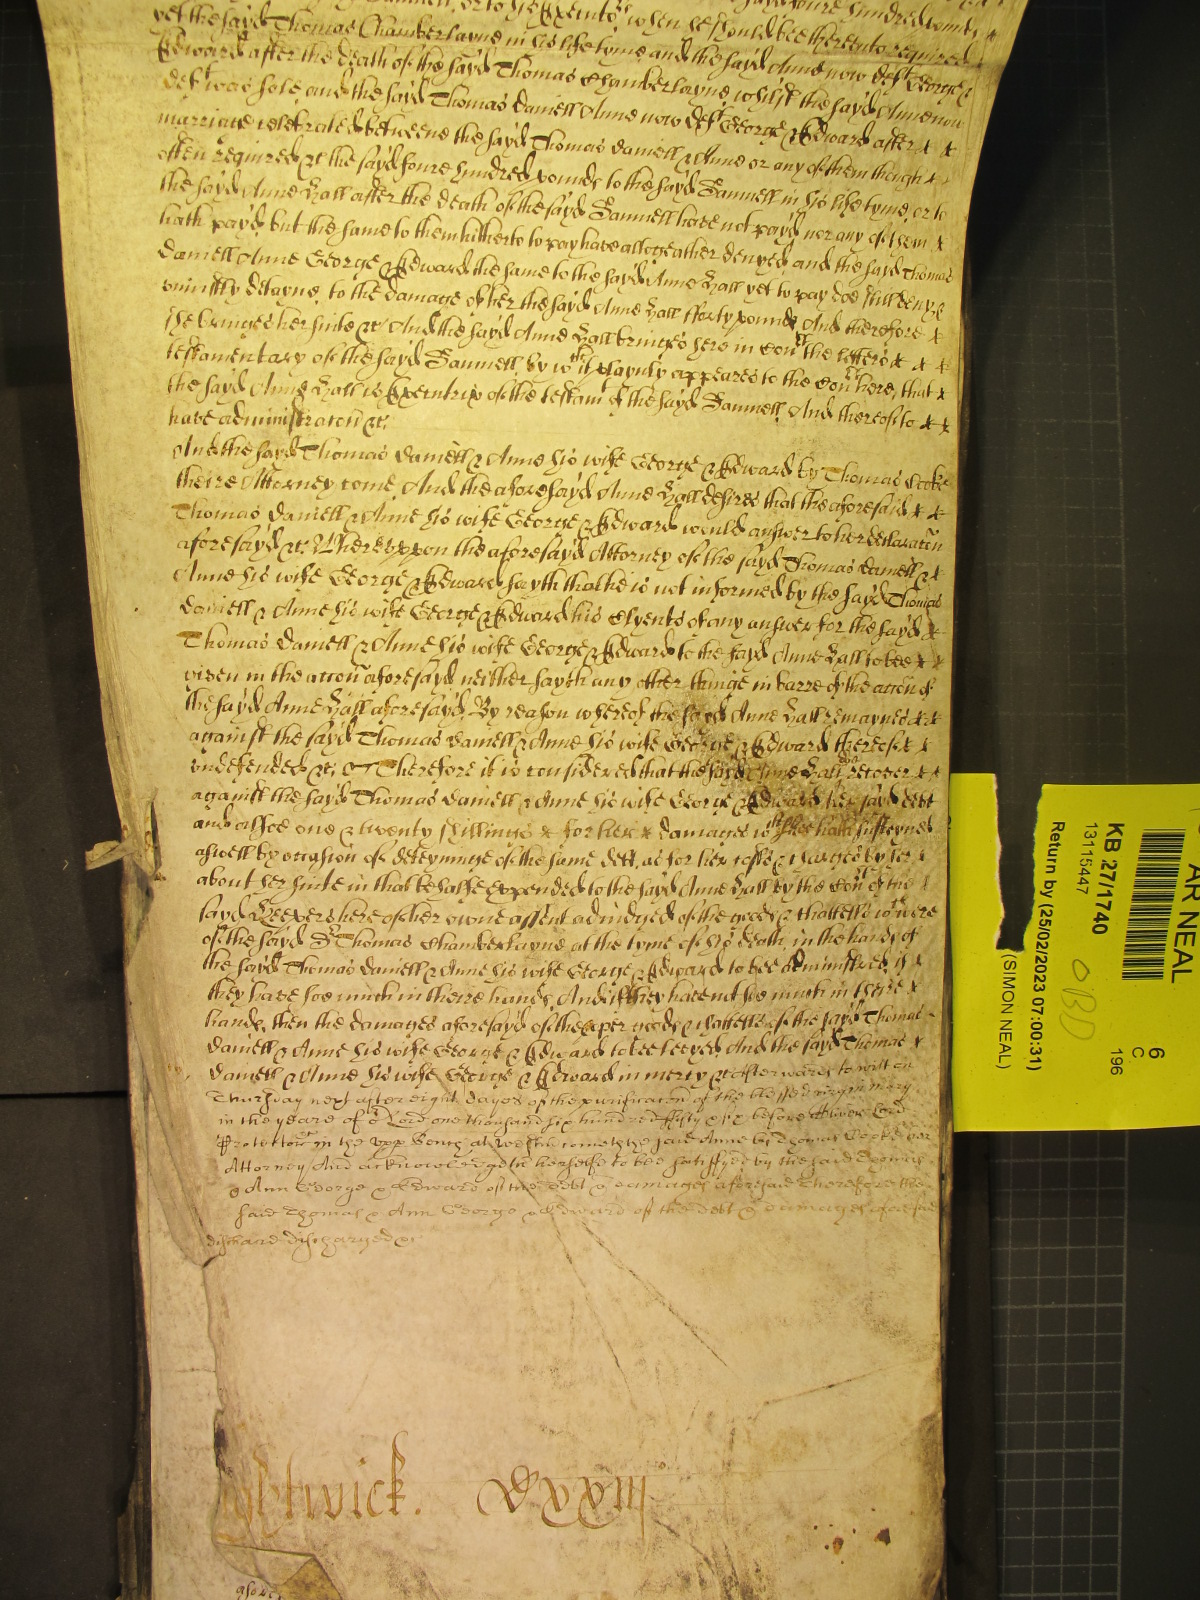 Samuell, or to his Executors when he should bee thereunto required
yet the sayd Thomas Chamberlayne in his life tyme and the sayd Anne now deft George &
Edward after the death of the sayd Thomas Chamberlayne whilst the sayd Anne now
deft was sole, and the sayd Thomas Daniell Anne now deft George & Edward after
marriage celebrated betweene the sayd Thomas Daniell & Anne or any of them though
often required &c the sayd foure hundred pounds to the sayd Samuell in his life tyme, or to
the sayd Anne Hall after the death of the sayd Samuell have not payd nor any of them
hath payd but the same to them hitherto to pay have altogeather denyed and the sayd Thomas
Daniell Anne George & Edward the same to the sayd Anne Hall yet to pay doe still deny &
uniustly detayne, to the damage of her the sayd Anne Hall fforty pounds And therefore
she bringes her suite &c And the sayd Anne Hall bringes here in Court the letters
testamentary of the sayd Samuell, by wch it playnly appeares to the Court here, that
the sayd Anne Hall is Executrix of the testamt of the sayd Samuell And thereof to
have administracon &c.
And the sayd Thomas Daniell & Anne his wife George & Edward by Thomas Cooke
theire Attorney come, And the aforesayd Anne Hall desires that the aforesaid
Thomas Daniell & Anne his wife George & Edward would answer to her declaracon
aforesayd &c. Whereuppon the aforesayd Attorney of the sayd Thomas Daniell &
Anne his wife George & Edward sayth that he is not informed by the sayd Thomas
Daniell & Anne his wife George & Edward his Clyents of any answer for the sayd
Thomas Daniell & Anne his wife George & Edward to the sayd Anne Hall to bee
given in the accon aforesayd neither sayth any other thinge in barre of the accon of
the sayd Anne Hall aforesayd, By reason whereof the sayd Anne Hall remaynes
against the sayd Thomas Daniell & Anne his wife George & Edward thereof
undefended &c. Therefore it is considered that the sayd Anne Hall recover
against the sayd Thomas Daniell & Anne his wife George & Edward her sayd debt
and alsoe one & twenty shillings for her damages wch shee hath susteyned
aswell by occasion of deteyninge of the same debt, as for her costs & charges by her
about her suite in that behalfe expended to the sayd Anne Hall by the Court of the
sayd Keepers here of her owne assent adiudged of the goods & chattells wch were
of the sayd Thomas Chamberlayne at the tyme of his death in the hands of
the sayd Thomas Daniell & Anne his wife George & Edward to bee administred, if
they have soe much in theire hands, And if they have not soe much in theire
hands, then the damages aforesayd of the proper goods & chattells of the sayd Thomas
Daniell & Anne his wife George & Edward to bee levyed And the sayd Thomas
Daniell & Anne his wife George & Edward in mercy &c Afterwards to witt on
Thursday next after eight dayes of the purificacon of the blessed virgin mary
in the yeare of or Lord one thousand six hundred ffifty & six before Oliver Lord
Protector in the upper Bench at Westmr cometh the said Anne by Thomas Cooke her
Attorney And acknowledgeth herselfe to bee satisfyed by the said Thomas
& Ann George & Edward of the debt & damages aforesaid Therefore the
said Thomas & Ann George & Edward of the debt & damages aforesaid
discharged &c
ghtwick. Dxxiij
afores
AR NEAL
6
C
196
KB 27/1740
13115447
Return by (25/02/2023 07:00:31)
(SIMON NEAL)
OBD